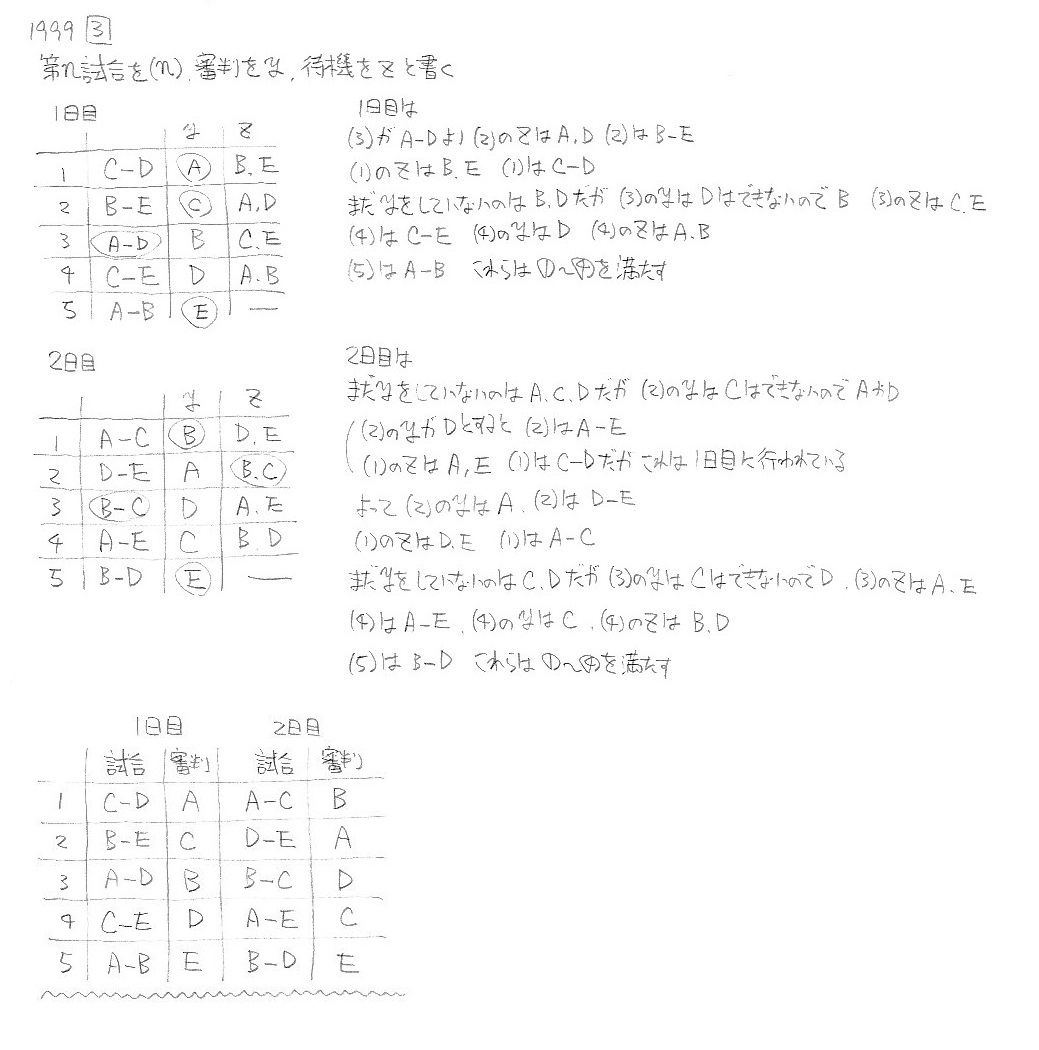 1999 3
第n試合を(n), 審判をy, 待機をzと書く
1日目
y z
1 C-D A B.E
2 B-E C A.D
3 A-D B C.E
4 C-E D A.B
5 A-B E —
1日目は
(3)がA-Dより(2)のzはA.D (2)はB-E
(1)のzはB.E (1)はC-D
まだyをしていないのはB.Dだが (3)のyはDはできないのでB (3)のzはC.E
(4)はC-E (4)のyはD (4)のzはA.B
(5)はA-B これらは①〜④を満たす
2日目
y z
1 A-C B D.E
2 D-E A B.C
3 B-C D A.E
4 A-E C B.D
5 B-D E —
2日目は
まだyをしていないのはA.C.Dだが (2)のyはCはできないのでAかD
(2)のyがDとすると (2)はA-E
(1)のzはA,E (1)はC-Dだが これは1日目に行われている
よって(2)のyはA. (2)はD-E
(1)のzはD.E (1)はA-C
まだyをしていないのはC.Dだが (3)のyはCはできないのでD. (3)のzはA.E
(4)はA-E. (4)のyはC. (4)のzはB.D
(5)はB-D これらは①〜④を満たす
1日目 2日目
試合 審判 試合 審判
1 C-D A A-C B
2 B-E C D-E A
3 A-D B B-C D
4 C-E D A-E C
5 A-B E B-D E